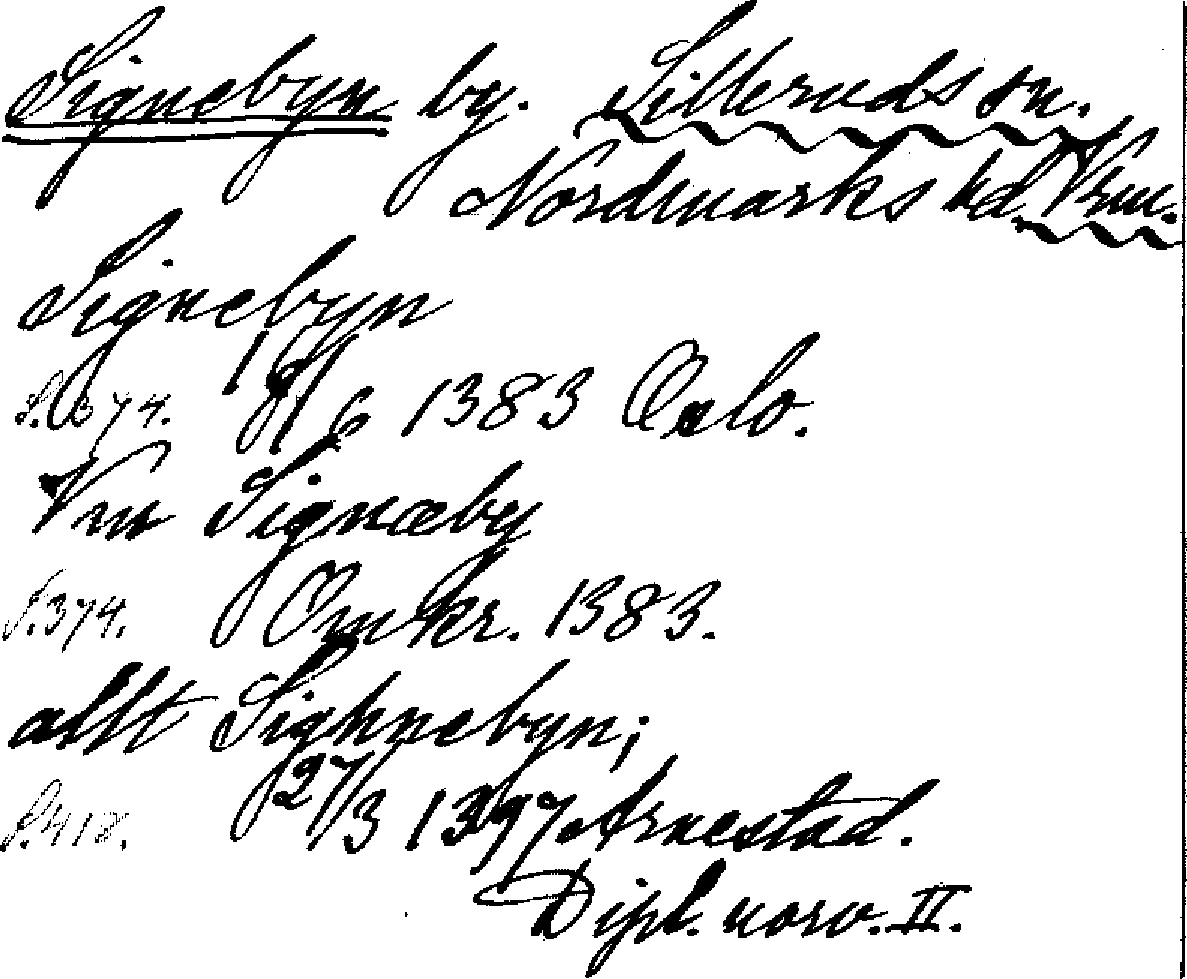 Signebyn by. Silleruds sn.
Nordmarks hd. Vrm.
Signebyn
S. 374. 18/6 1383 Oslo.
Signæby
S. 374. Omkr. 1383.
allt Sighnebyn;
S. 418. 27/3 1397 Arnestad.
Dipl. norv. II.